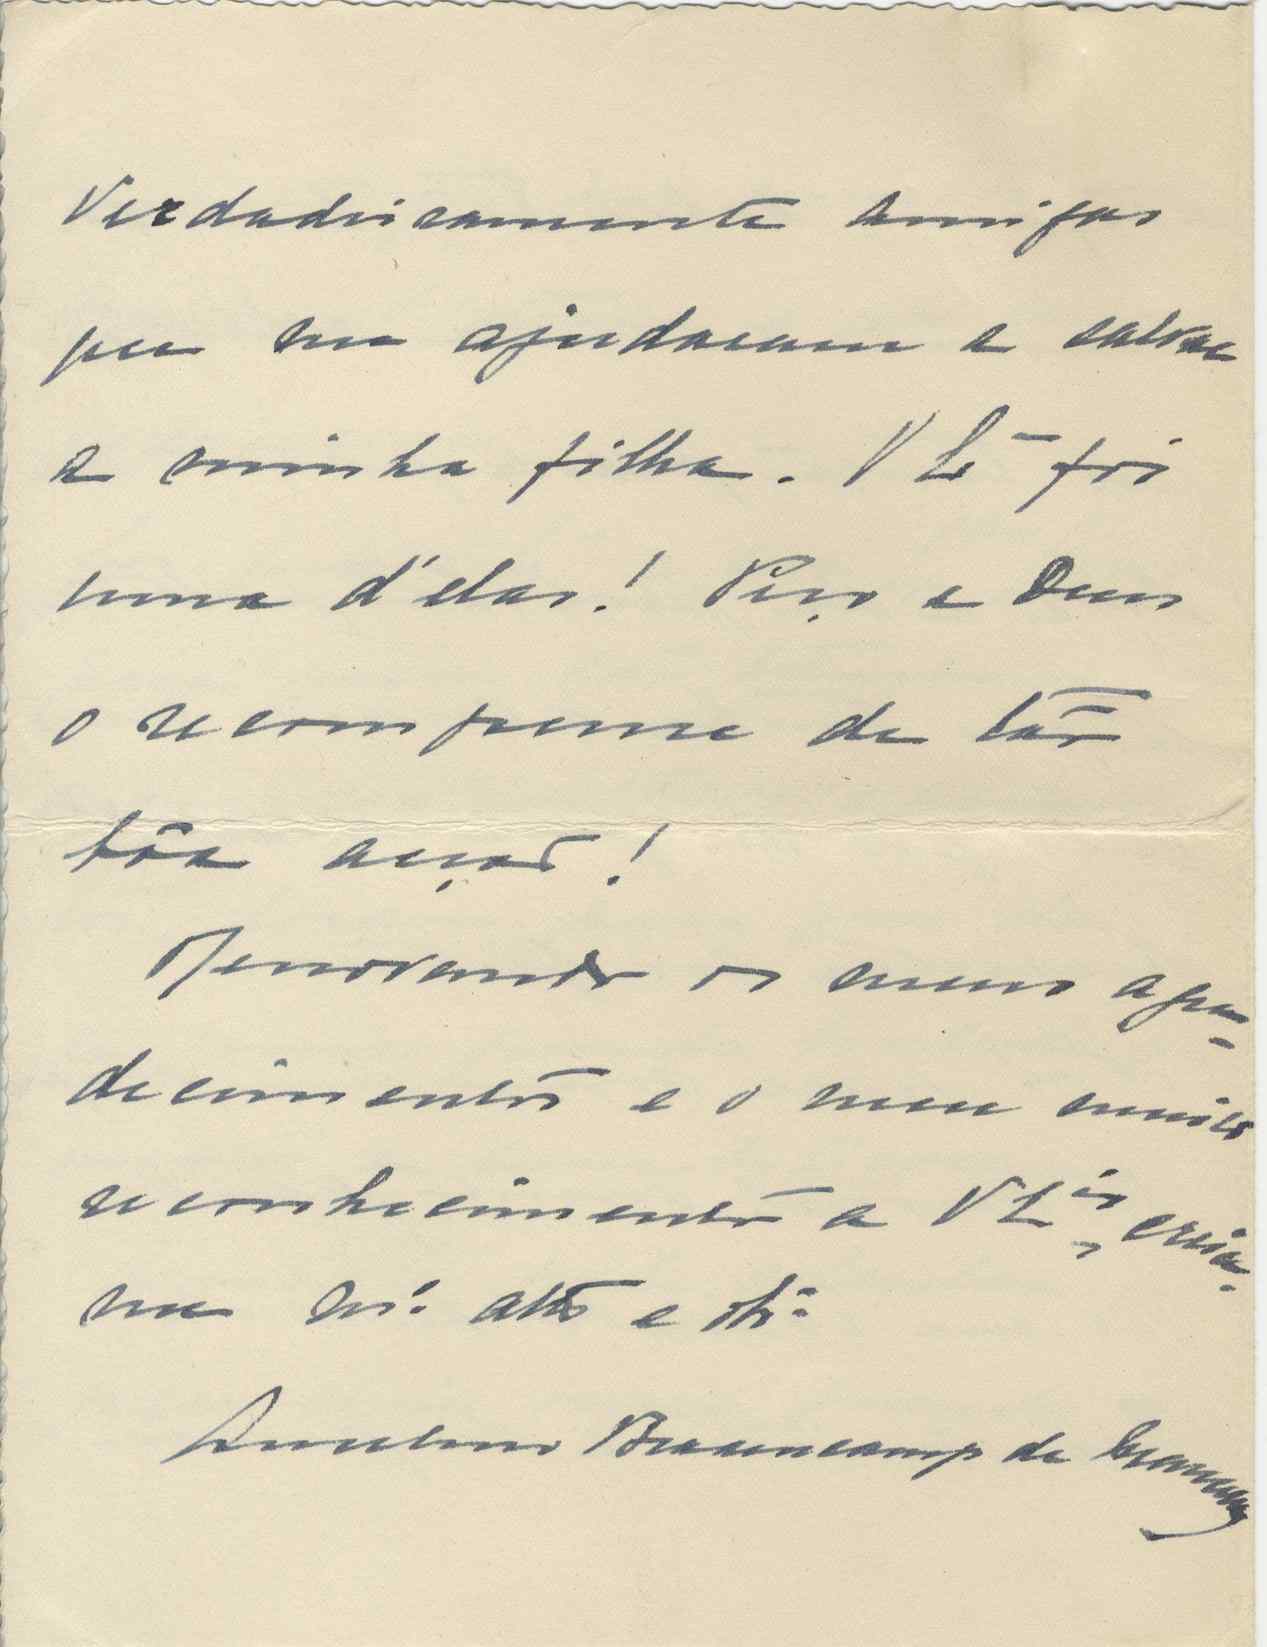 Verdadeiramente amigas
que me ajudaram a salvar
a minha filha. V Eª foi
uma d'elas! Peço a Deus
o recompense de tão
bôa acção!
Renovando os meus agra-
decimentos e o meu muito
reconhecimento a V E
me mº attº e obº
Anselmo Braamcamp de